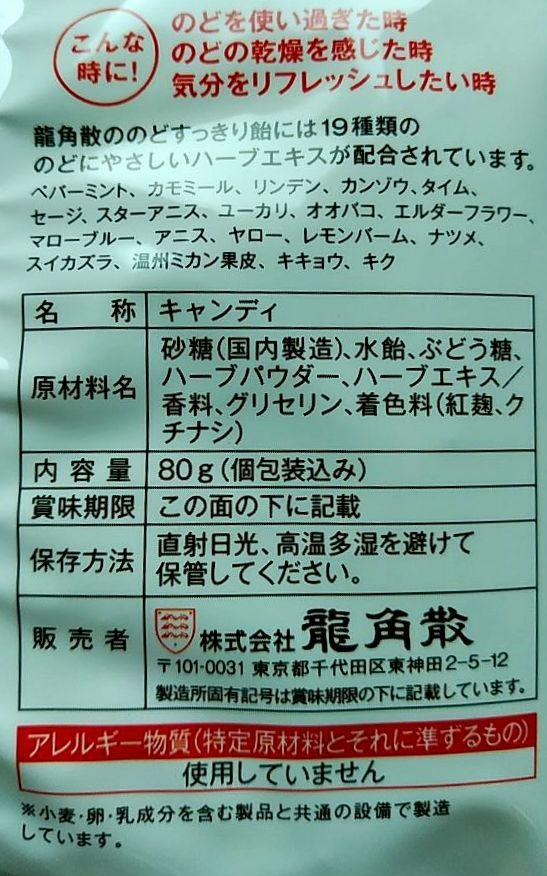 こんな
時に!
のどを使い過ぎた時
のどの乾燥を感じた時
気分をリフレッシュしたい時
龍角散ののどすっきり飴には19種類の
のどにやさしいハーブエキスが配合されています。
ペパーミント、カモミール、リンデン、カンゾウ、タイム、
セージ、スターアニス、ユーカリ、オオバコ、エルダーフラワー、
マローブルー、アニス、ヤロー、レモンバーム、ナツメ、
スイカズラ、温州ミカン果皮、キキョウ、キク
名称 キャンディ
原材料名 砂糖(国内製造)、水飴、ぶどう糖、
ハーブパウダー、ハーブエキス/
香料、グリセリン、着色料(紅麹、ク
チナシ)
内容量 80g(個包装込み)
賞味期限 この面の下に記載
保存方法 直射日光、高温多湿を避けて
保管してください。
販売者 株式会社 龍角散
〒101-0031 東京都千代田区東神田2-5-12
製造所固有記号は賞味期限の下に記載しています。
アレルギー物質(特定原材料とそれに準ずるもの)
使用していません
※小麦・卵・乳成分を含む製品と共通の設備で製造
しています。